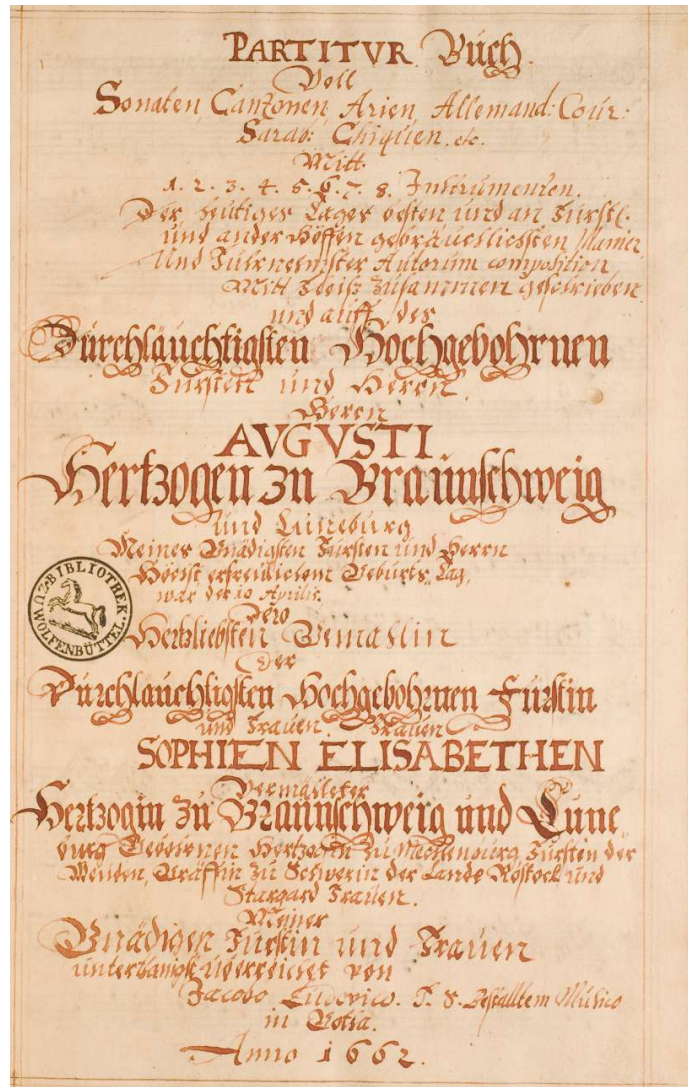 PARTITVR Buch.
Voll
Sonaten, Canzonen, Arien, Allemand: Cour:
Sarab: Chiquen. etc.
Mitt
1. 2. 3. 4. 5. 6. 7. 8. Instrumenten.
Der heutiger Tages besten und an Fürstl.
und ander Höffen gebräuchlichsten Manier
Und Führnembster Autorum composition
Mitt Fleiß zusammen geschrieben
und auff des
Dürchläuchtigsten Hochgebohrnen
Fürsten und Herrn
Herrn
AVGVSTI
Hertzogen zu Braunschweig
und Lüneburg
Meines Gnädigsten Fürsten und Herrn
Höchst erfreulichem Geburts Tag,
war der 10 Aprilis.
Dero
Hertzliebsten Gemahlin
Der
Dürchläuchtigsten Hochgebohrnen Fürstin
und Frauen. Frauen
SOPHIEN ELISABETHEN
Vermähleter
Hertzogin zu Braunschweig und Lune
burg Gebohrnen Hertzogin zu Mecklenburg, Fürsten der
Wenden, Gräffin zu Schwerin der Lande Rostock und
Stargard Frauen.
Meiner
Gnädigen Fürstin und Frauen
unterthänigst überreichet von
Jacobo Ludovico. F. S. Bestalltem Musico
in Gotha.
Anno 1662.
BIBLIOTHEK
ZU WOLFENBÜTTEL.